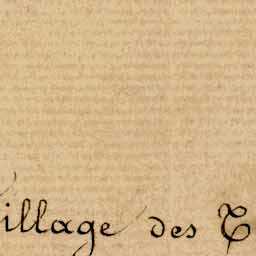 illage des